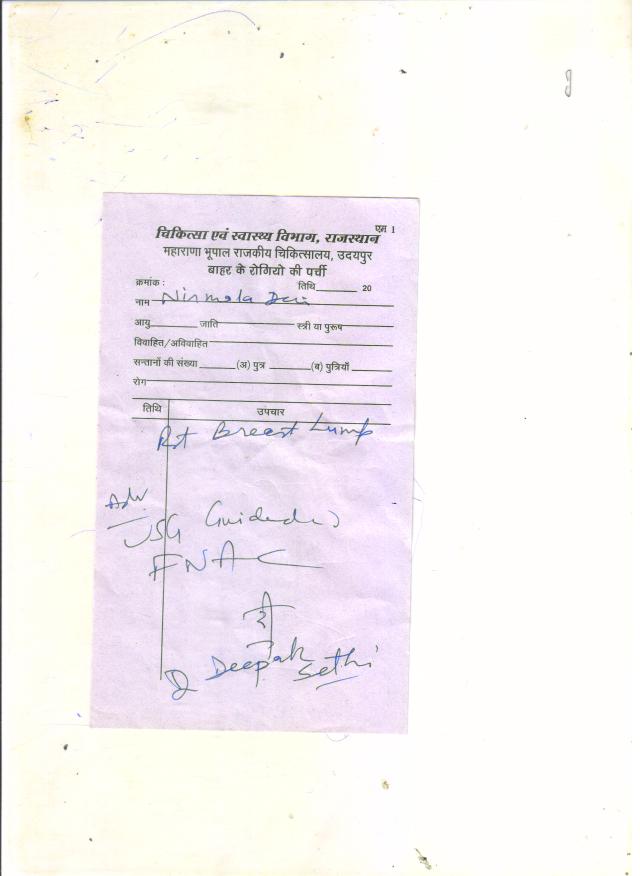 एम 1
चिकित्सा एवं स्वास्थ्य विभाग, राजस्थान
महाराणा भूपाल राजकीय चिकित्सालय, उदयपुर
बाहर के रोगियो की पर्ची
क्रमांक : तिथि______ 20
नाम Nirmala Devi
आयु______ जाति______ स्त्री या पुरूष______
विवाहित/अविवाहित______
सन्तानों की संख्या ______(अ) पुत्र ______(ब) पुत्रियाँ ______
रोग______
तिथि उपचार
Rt Breast Lump
Adv
USG Guided
FNAC
Dr Deepak
Sethi